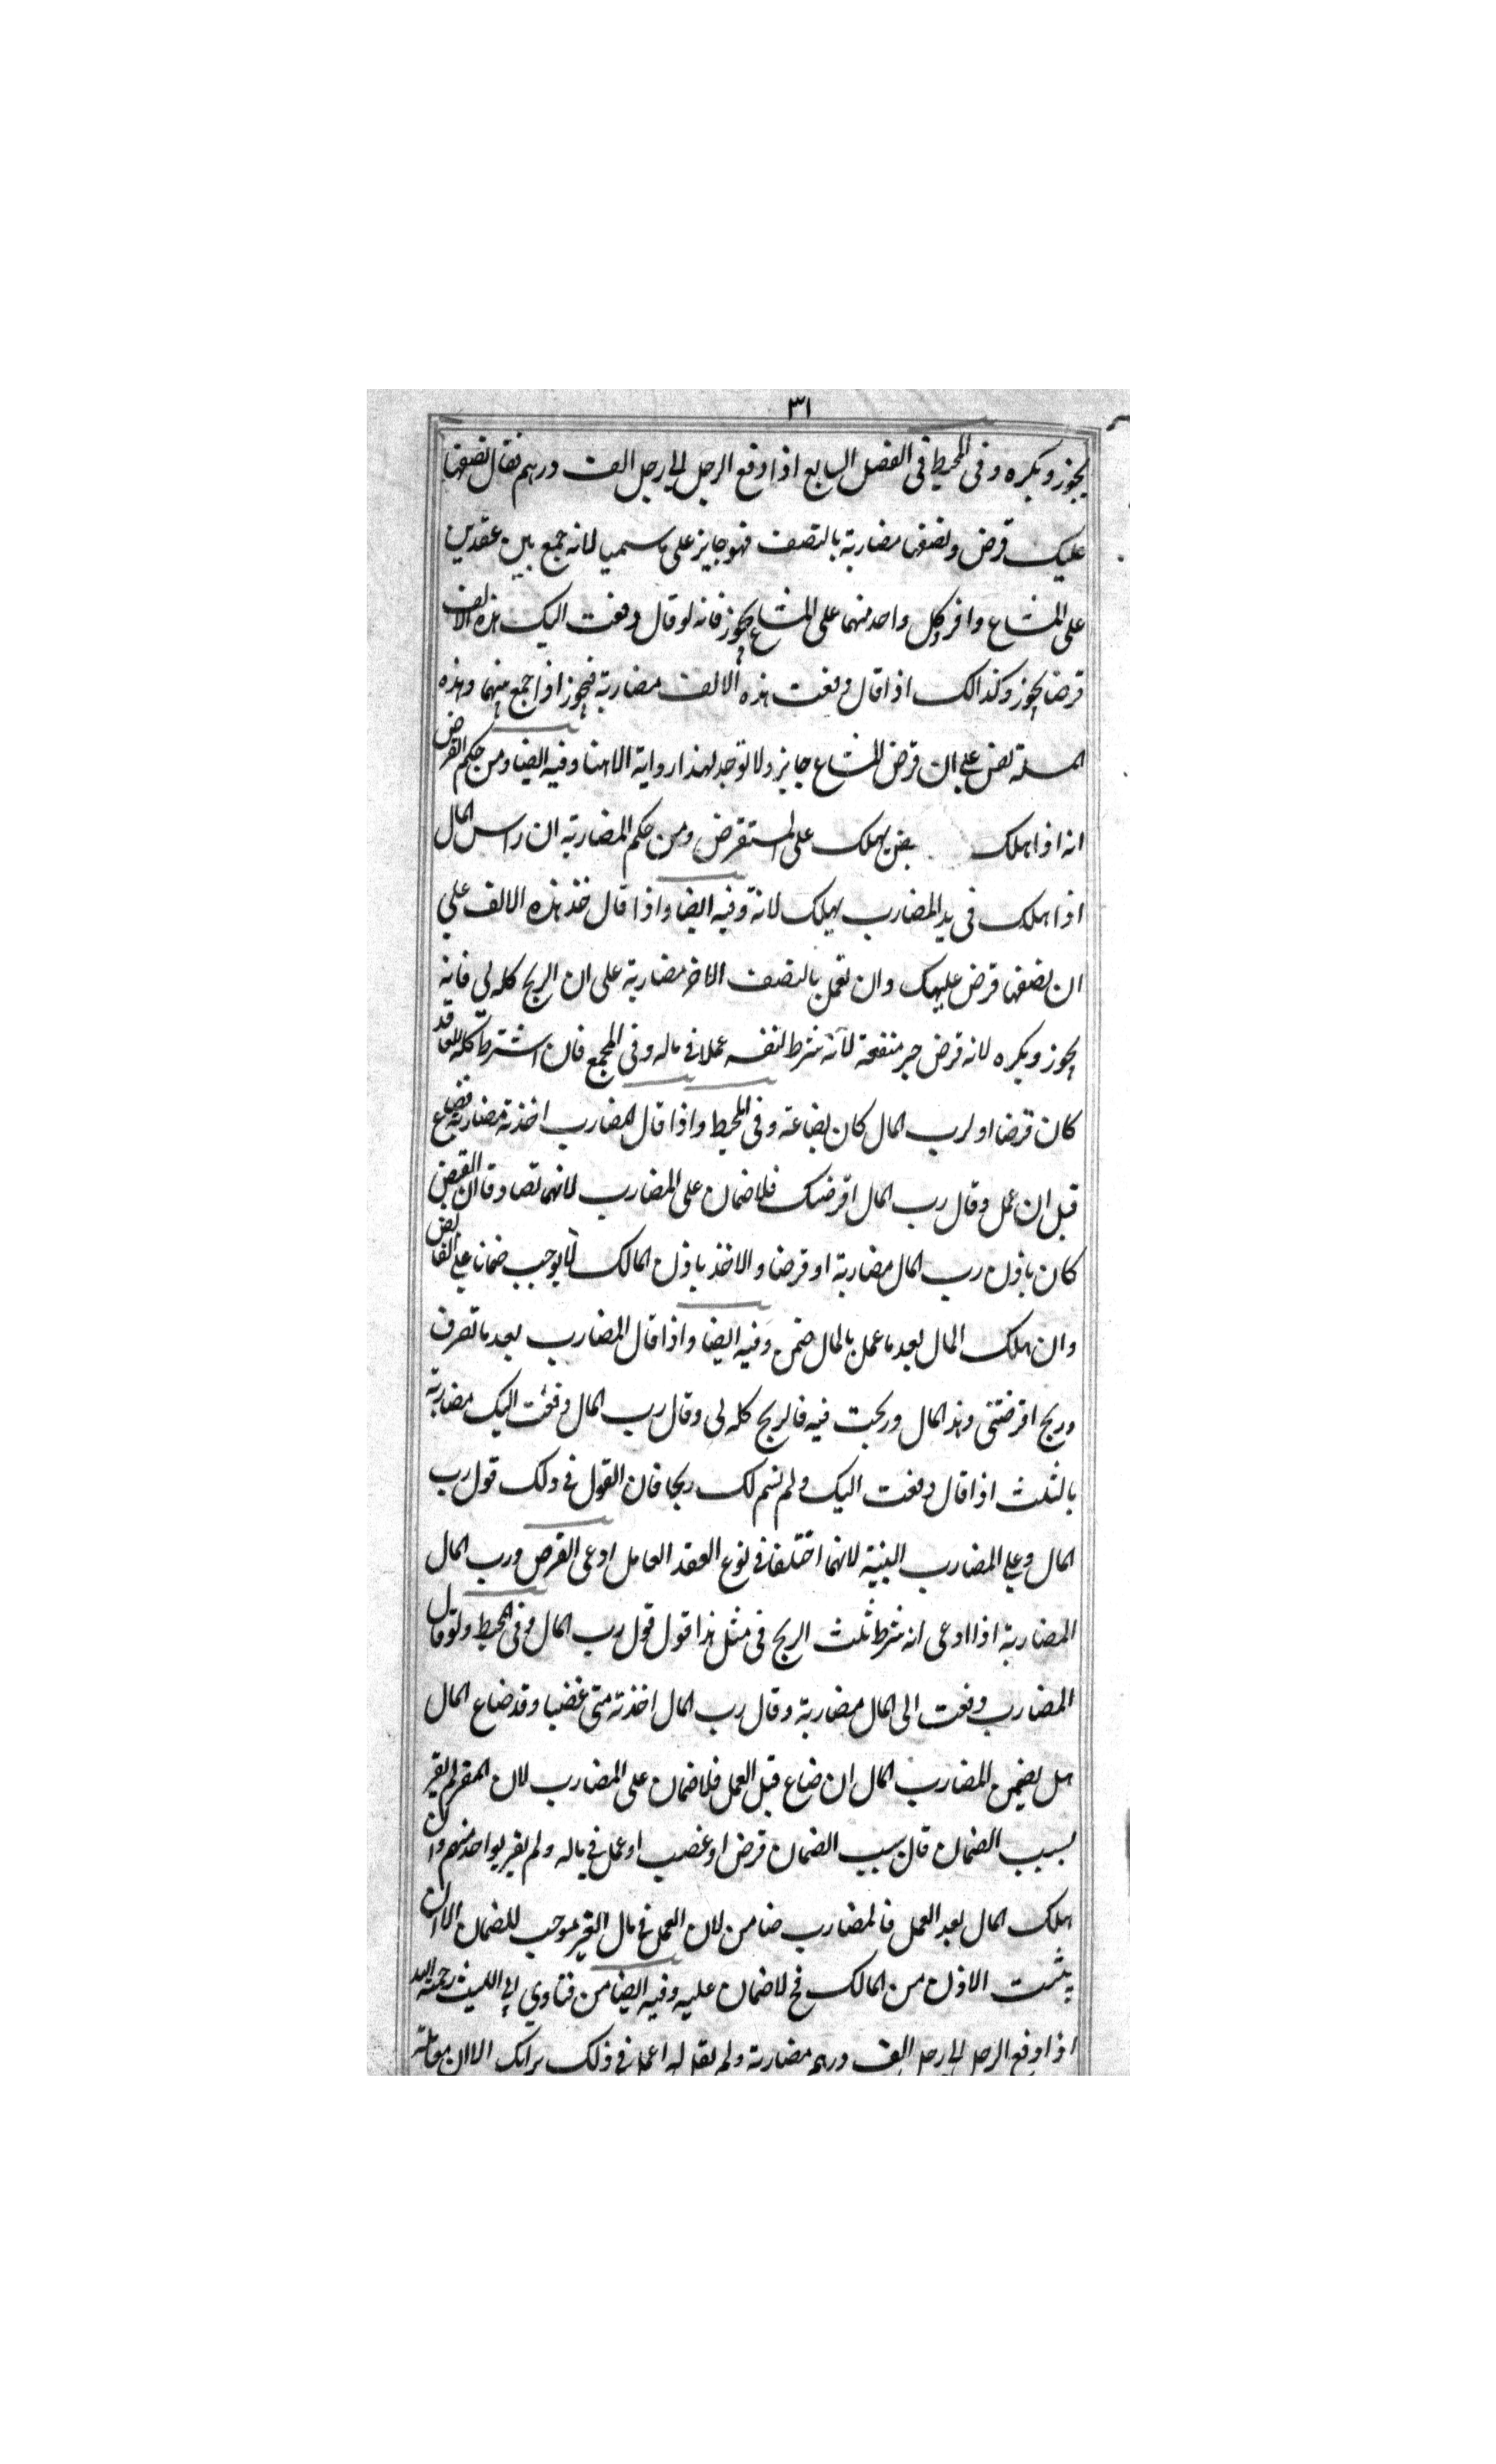 ٣١
يجوز ويكره وفى المحيط فى الفصل السابع اذا دفع الرجل الى رجل الف درهم فقال نصفها
عليك قرض ونصفها مضاربة بالنصف فهو جايز على ما سميا لانه جمع بين عقدين
على المشاع وافرد كل واحد منهما على المشاع يجوز فانه لو قال دفعت اليك هذه الالف
قرضا يجوز وكذالك اذا قال دفعت هذه الالف مضاربة فيجوز اذا جمع بينهما وهذه
المسئلة نص على ان قرض المشاع جايز ولا توجد لهذا رواية الا هنا وفيه ايضا ومن حكم القرض
انه اذا هلك يهلك على المستقرض ومن حكم المضاربة ان راس المال
اذا هلك فى يد المضارب يهلك لانة وفيه ايضا واذا قال خذ هذه الالف على
ان نصفها قرض عليك وان تعمل بالنصف الاخر مضاربة على ان الربح كله لى فانه
يجوز ويكره لانه قرض جر منفعة لانه شرط لنفسه عملا فى ماله وفى المجمع فان اشترط كله للعاقد
كان قرضا او لرب المال كان بضاعة وفى المحيط واذا قال المضارب اخذته مضاربة فضاع
قبل ان عمل وقال رب المال اقرضتك فلا ضمان على المضارب لانهما تصادقا ان القبض
كان باذن رب المال مضاربة او قرضا والاخذ باذن المالك لا يوجب ضمانا على القابض
وان هلك المال بعد ما عمل بالمال ضمن وفيه ايضا واذا قال المضارب بعد ما تصرف
وربح اقرضتنى وهذ المال وربحت فيه فالربح كله لى وقال رب المال دفعت اليك مضاربة
بالثلث اذا قال دفعت اليك ولم نسم لك ربحا فان القول فى ذلك قول رب
المال وعلى المضارب البينة لانهما اختلفا فى نوع العقد العامل ادعى القرض ورب المال
المضاربة اذا ادعى انه شرط ثلث الربح فى مثل هذا قول قول رب المال وفى المحيط ولو قال
المضارب دفعت الى المال مضاربة وقال رب المال اخذته منى غضبا وقد ضاع المال
هل يضمن المضارب المال ان ضاع قبل العمل فلا ضمان على المضارب لان المقر لم يقر
بسبب الضمان قان سبب الضمان قرض او غصب او عمل فى ماله ولم يقر بواحد منهم وان
هلك المال بعد العمل فالمضارب ضامن لان العمل فى مال الغير موجب للضمان الا ان
يثبت الاذن من المالك فح لا ضمان عليه وفيه ايضا من فتاوي ابى الليث رحمة الله
اذا دفع الرجل الى رجل الف درهم مضاربة ولم يقل له اعمل فى ذلك برائك الا ان